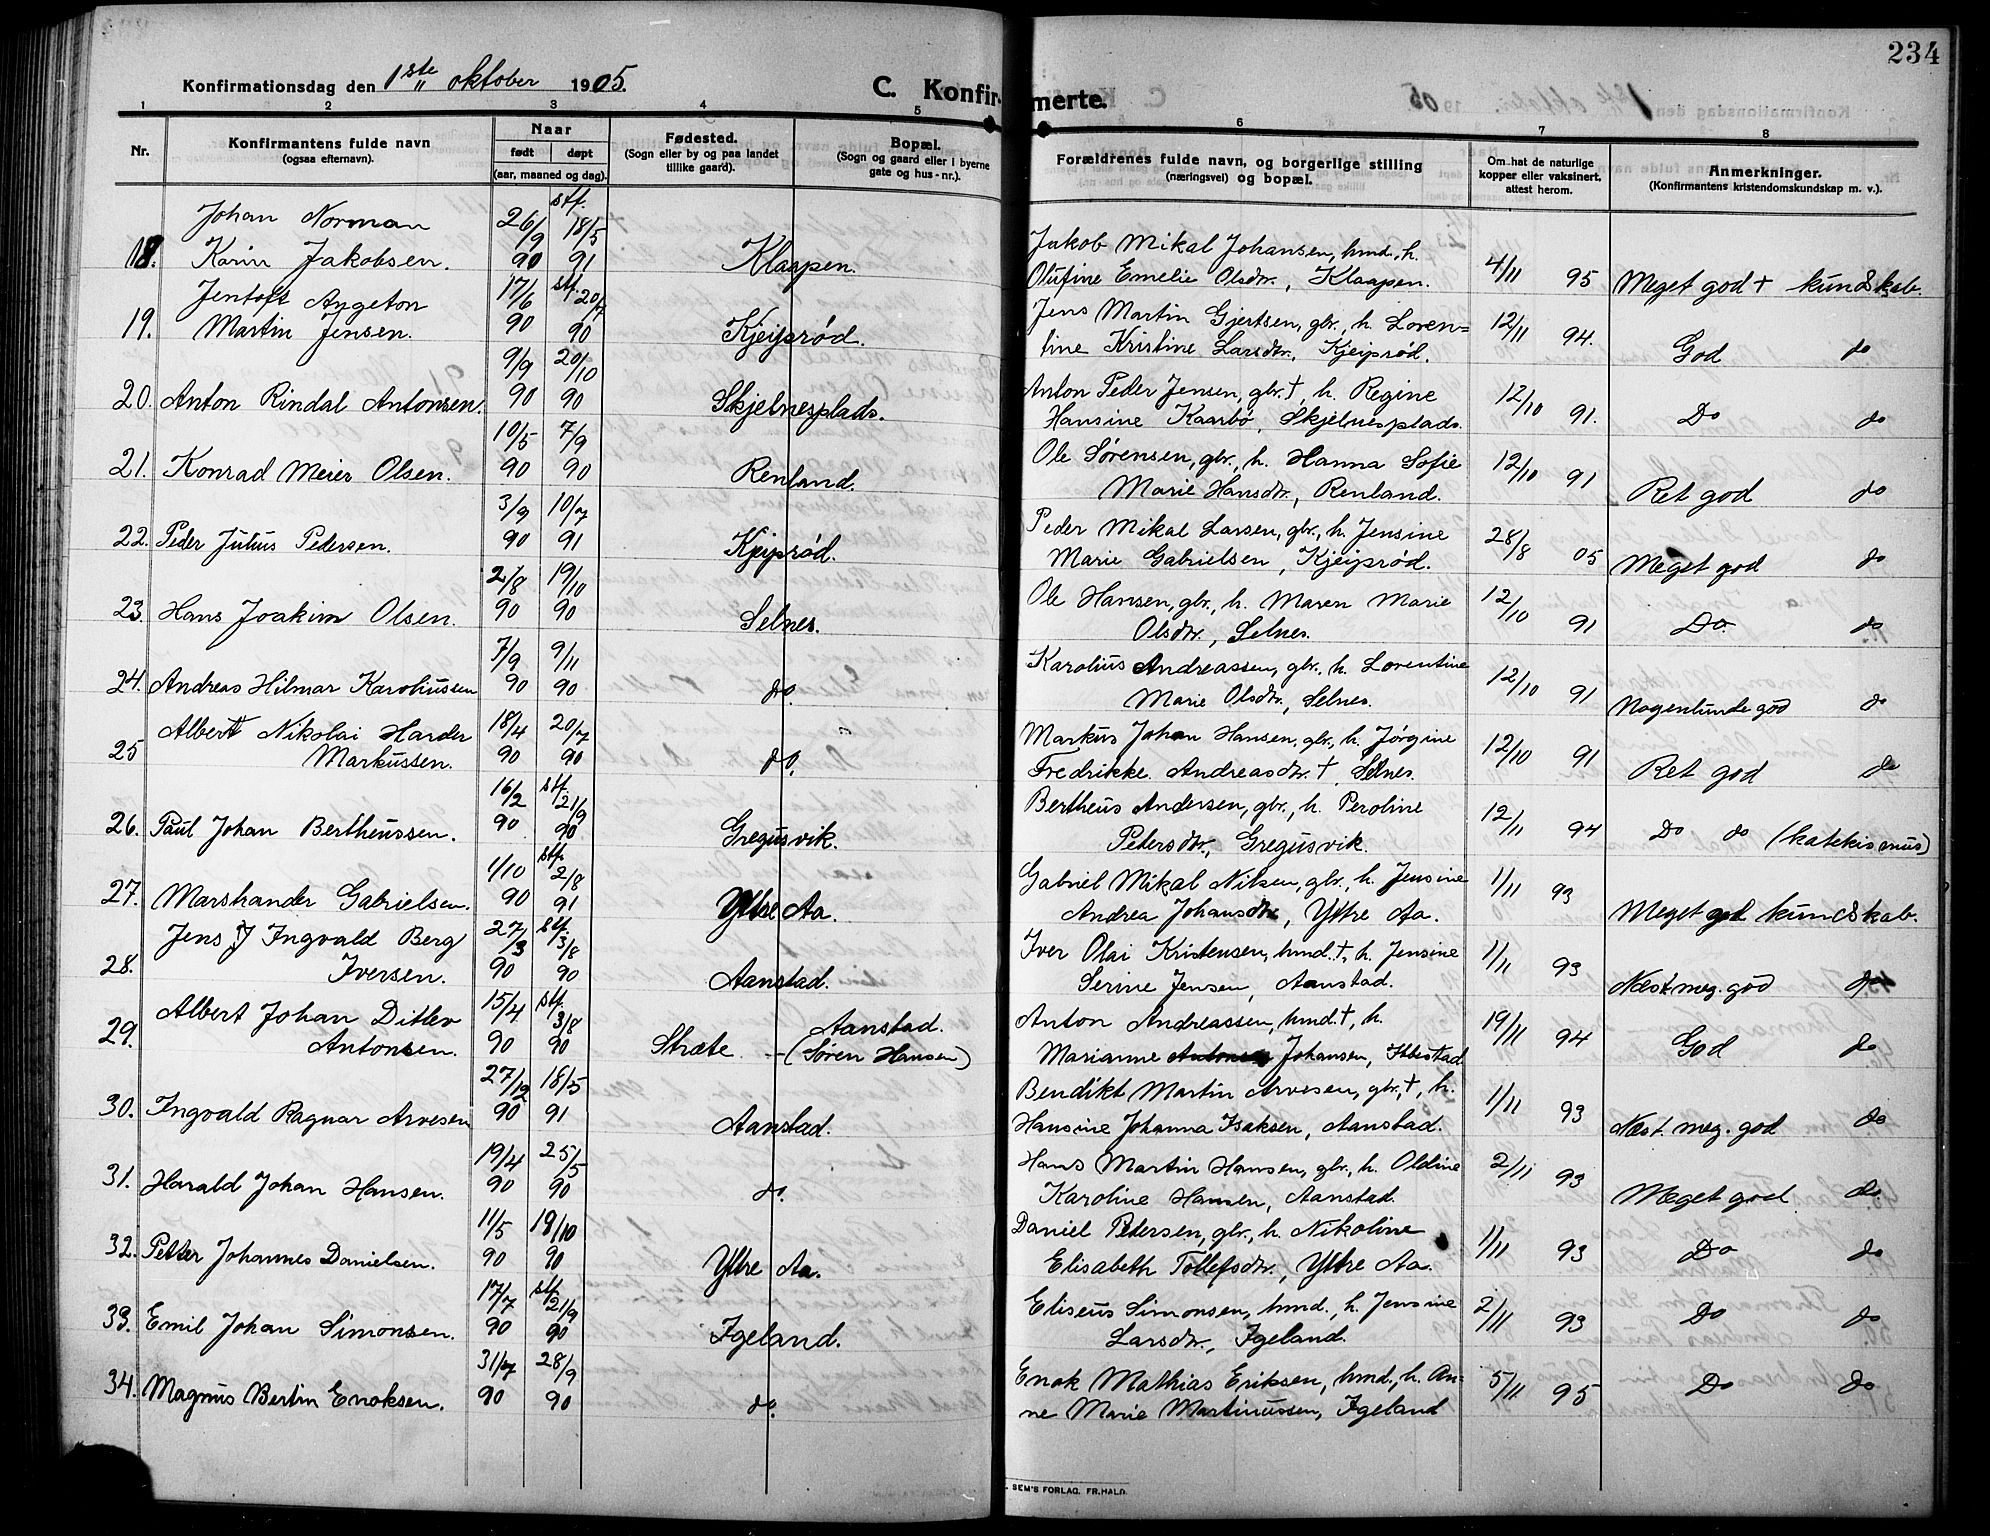 234
Konfirmationsdag den 1ste oktober 1905.
C. Konfirmerte.
1 2 3 4 5 6 7 8
Nr.
Konfirmantens fulde navn
(ogsaa efternavn).
Naar
født døpt
(aar, maaned og dag).
Fødested.
(Sogn eller by og paa landet
tillike gaard).
Bopæl.
(Sogn og gaard eller i byerne
gate og hus-nr.).
Forældrenes fulde navn, og borgerlige stilling
(næringsvei) og bopæl.
Om hat de naturlige
kopper eller vaksinert,
attest herom.
Anmerkninger.
(Konfirmantens kristendomskundskap m. v.).
Johan Norman 26/9 stf. 18/5 Jakob Mikal Johansen, hmd., h.
18. Karin Jakobsen. 90 91 Klaapen. Olufine Emelie Olsdtr., Klaapen. 4/11 95 Meget god + kundskab.
Jentoft Angeton 17/6 stf. 20/7 Jens Martin Gjertsen, gbr., h. Loren=
19. Martin Jensen. 90 90 Kjeiprød. tine Kristine Larsdtr., Kjeiprød. 12/11 94. God do
9/9 20/10 Anton Peder Jensen, gbr. †, h. Regine
20. Anton Rindal Antonsen. 90 90 Skjelnesplads. Hansine Kaarbø, Skjelnesplads. 12/10 91. Do do
10/5 7/9 Ole Sørensen, gbr., h. Hanna Sofie
21. Konrad Meier Olsen. 90 90 Renland. Marie Hansdtr., Renland. 12/10 91 Ret god do
3/9 10/7 Peder Mikal Larsen, gbr., h. Jensine
22. Peder Julius Pedersen. 90 91 Kjeiprød. Marie Gabrielsen, Kjeiprød. 28/8 05 Meget god do
2/8 19/10 Ole Hansen, gbr., h. Maren Marie
23. Hans Joakim Olsen. 90 90 Selnes. Olsdtr., Selnes. 12/10 91 Do. do
7/9 9/11 Karolius Andreassen, gbr., h. Lorentine
24. Andreas Hilmar Karoliussen 90 90 do. Marie Olsdtr., Selnes. 12/10 91 Nogenlunde god do
Albert Nikolai Harder 18/4 20/7 Markus Johan Hansen, gbr., h. Jørgine
25 Markussen. 90 90 do. Fredrikke Andreasdtr. †, Selnes. 12/10 91 Ret god do
16/2 stf. 21/9 Bertheus Andersen, gbr., h. Peroline
26. Paul Johan Bertheussen. 90 90 Gregusvik. Petersdtr., Gregusvik. 12/11 94 Do do (katekismus)
1/10 stf. 2/8 Gabriel Mikal Nilsen, gbr., h. Jensine
27. Marshander Gabrielsen. 90 91 Yttre Aa. Andrea Johansdtr., Yttre Aa. 1/11 93 Meget god kundskab.
Jens J Ingvald Berg 27/3 stf. 3/8 Iver Olai Kristensen, hmd. †, h. Jensine
28. Iversen. 90 90 Aanstad. Serine Jensen, Aanstad. 1/11 93 Næst meg. god do
Albert Johan Ditlev 15/4 stf. 3/8 Aanstad. Anton Andreassen, hmd. †, h.
29. Antonsen. 90 90 Stræte. — (Søren Hansen) Marianne Johansen, Ibbestad 19/11 94 God do
27/12 18/5 Bendikt Martin Arvesen, gbr., †, h.
30. Ingvald Ragnar Arvesen 90 91 Aanstad. Hansine Johanna Isaksen, Aanstad. 1/11 93 Næst. meg. god do
19/4 25/5 Hans Martin Hansen, gbr., h. Oldine
31. Harald Johan Hansen. 90 90 do. Karoline Hansen, Aanstad. 2/11 93 Meget god do.
11/5 19/10 Daniel Petersen, gbr., h. Nikoline
32. Petter Johannes Danielsen. 90 90 Yttre Aa. Elisabeth Tollefsdtr., Yttre Aa. 1/11 93 Do do
17/7 stf. 21/9 Eliseus Simonsen, hmd., h. Jensine
33. Emil Johan Simonsen. 90 90 Igeland. Larsdtr., Igeland. 2/11 93 Do do
31/7 28/9 Enok Mathias Eriksen, hmd., h. An=
34. Magnus Bertin Enoksen. 90 90 do. ne Marie Martinussen, Igeland 5/11 95 Do do
SEM'S FORLAG. FR.HALD.